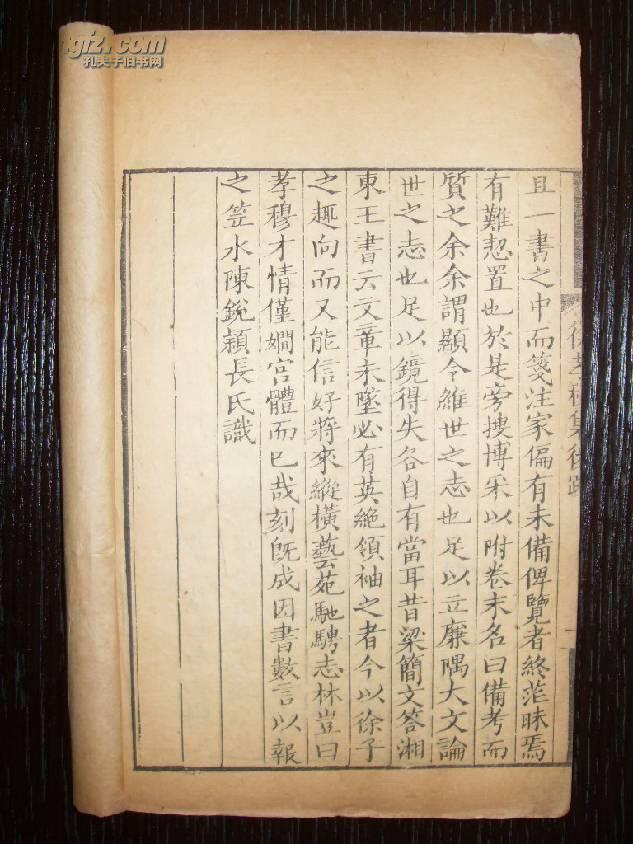 giz.com
孔夫子旧书网
徐孝穆集後跋
且一書之中而箋注家偏有未備俾覽者終茫昧焉
有難恝置也於是旁搜博采以附卷末名曰備考而
質之余余謂顯令維世之志也足以立廉隅大文論
世之志也足以鏡得失各自有當耳昔梁簡文答湘
東王書云文章未墜必有英絶領袖之者今以徐子
之趣向而又能信好蔣來縱橫藝苑馳騁志林豈曰
孝穆才情僅嫺宮體而已哉刻既成因書數言以報
之笠水陳銳頴長氏識